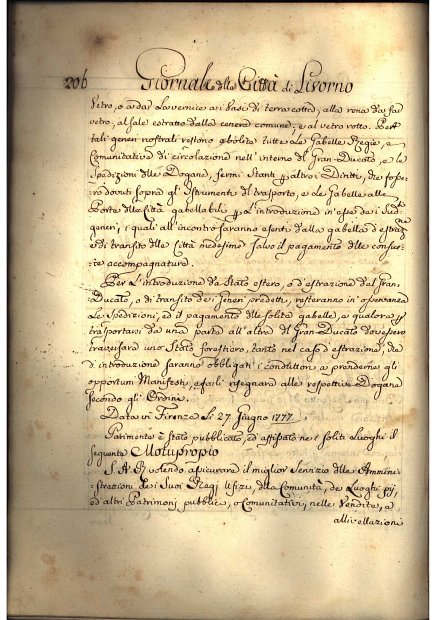 206 Giornale della Città di Livorno
Vetro, o da da La vernice ai Vasi di terra cotta, alla rena da far
vetro, al sale estratto dalla cenere comune, e al vetro rotto. Per
tali generi nostrali restono abolite tutte Le Gabelle Regie, e
Comunitative di circolazione nell' interno del Gran-Ducato, e le
Spedizioni delle Dogane, fermi Stanti altro i Diritti, che fosse-
ro dovuti sopra gl' Istrumenti del trasporto, e Le Gabelle alle
Porte delle Città gabellabili L'introduzione in esse dei Sud.ti
generi, i quali all'incontro saranno esenti dalla gabella d'estraz.ne
e di transito delle Città medesime salvo il pagamento delle consue-
te accompagnature.
Per L'introduzione da Stato estero, o d'estrazione dal Gran-
Ducato, o di transito dei Generi predetti, resteranno in osservanza
Le Spedizioni, ed il pagamento delle solite gabelle, e qualora
trasportarsi da una parte all'altra del Gran-Ducato dovessero
traversare uno Stato forestiero, tanto nel caso d'estrazione, che
d'introduzione saranno obbligati i conduttori a prenderne gl'
opportuni Manifesti, e farli risegnare alle respettive Dogane
Secondo gli Ordini.
Data in Firenze Li 27. Giugno 1777.
Parimente è stato pubblicato, ed affissato nei soliti Luoghi il
seguente Motuproprio
S. A. R. volendo assicurare il miglior Servizio delle Ammini-
strazioni dei Suoi Regj Ufizi, della Comunità, de Luoghi pij,
ed altri Patrimonj pubblici, o Comunitativi, nelle Vendite, a
allivellazioni